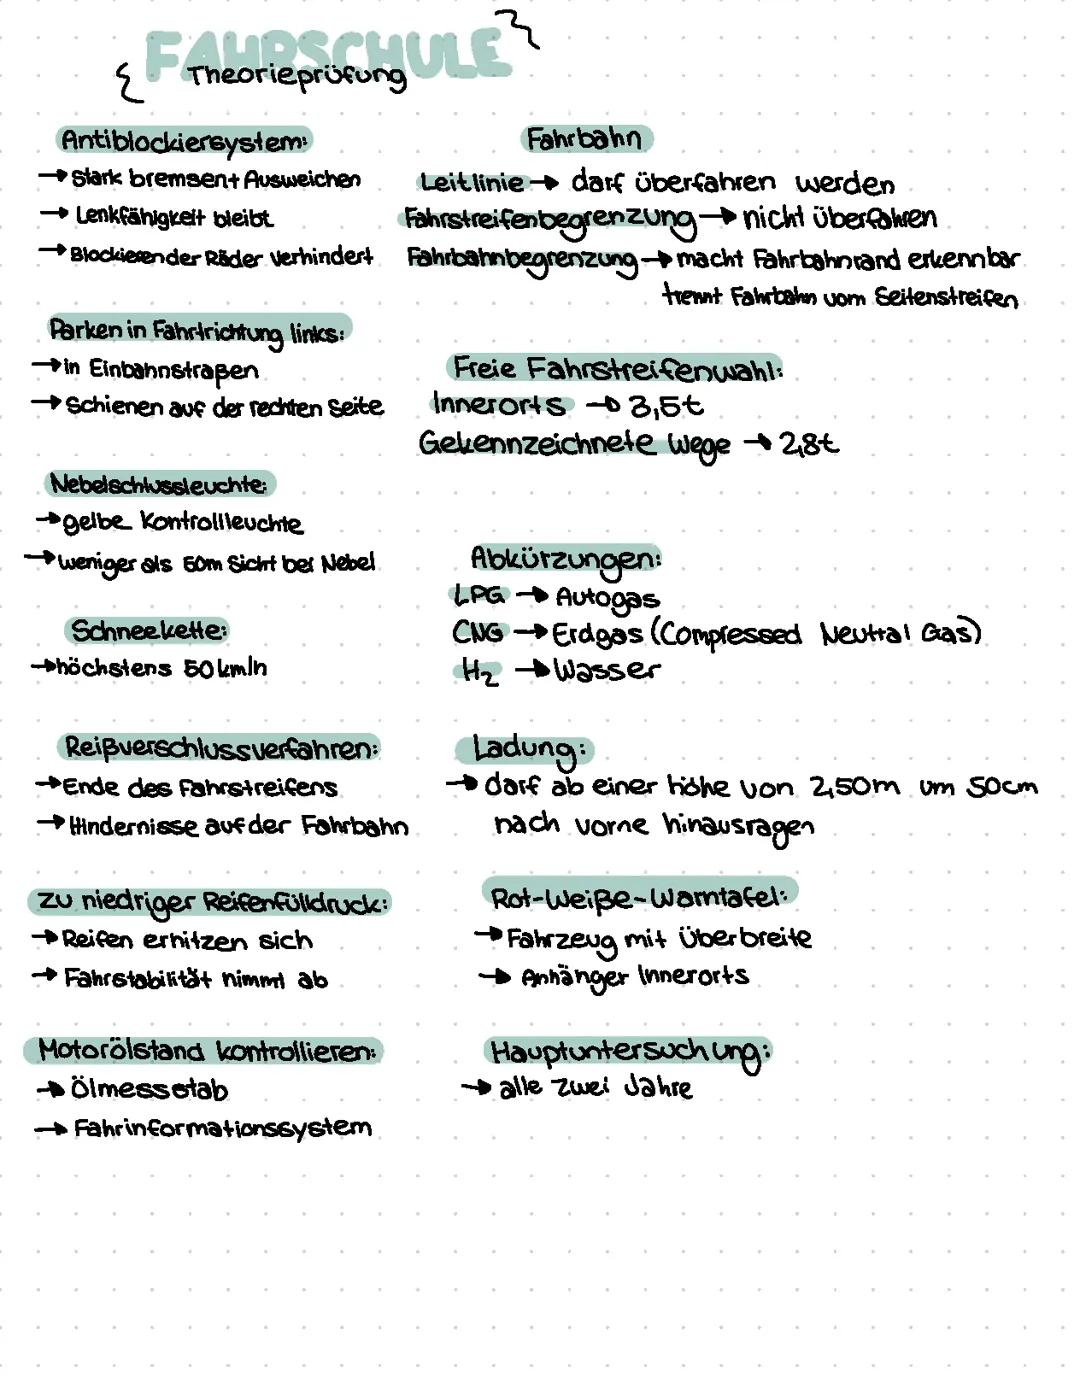 FAHRSCHULE
Theorieprüfung
Antiblockiersystem:
→ Stark bremsen + Ausweichen
→ Lenkfähigkeit bleibt
→ Blockieren der Räder verhindert
Parken in Fahrtrichtung links:
→ in Einbahnstraßen
→ Schienen auf der rechten Seite
Nebelschlussleuchte:
→ gelbe Kontrollleuchte
→ weniger als 50m Sicht bei Nebel
Schneekette:
→ höchstens 50 km/h
Reißverschlussverfahren:
→ Ende des Fahrstreifens
→ Hindernisse auf der Fahrbahn
zu niedriger Reifenfülldruck:
→ Reifen erhitzen sich
→ Fahrstabilität nimmt ab
Motorölstand kontrollieren:
→ Ölmessstab
→ Fahrinformationssystem
Fahrbahn
Leitlinie → darf überfahren werden
Fahrstreifenbegrenzung → nicht überfahren
Fahrbahnbegrenzung → macht Fahrbahnrand erkennbar
trennt Fahrbahn vom Seitenstreifen
Freie Fahrstreifenwahl:
Innerorts → 3,5t
Gekennzeichnete Wege → 2,8t
Abkürzungen:
LPG → Autogas
CNG → Erdgas (Compressed Neutral Gas)
H₂ → Wasser
Ladung:
→ darf ab einer höhe von 2,50m um 50cm
nach vorne hinausragen
Rot-Weiße-Warntafel:
→ Fahrzeug mit Überbreite
→ Anhänger Innerorts
Hauptuntersuchung:
→ alle zwei Jahre